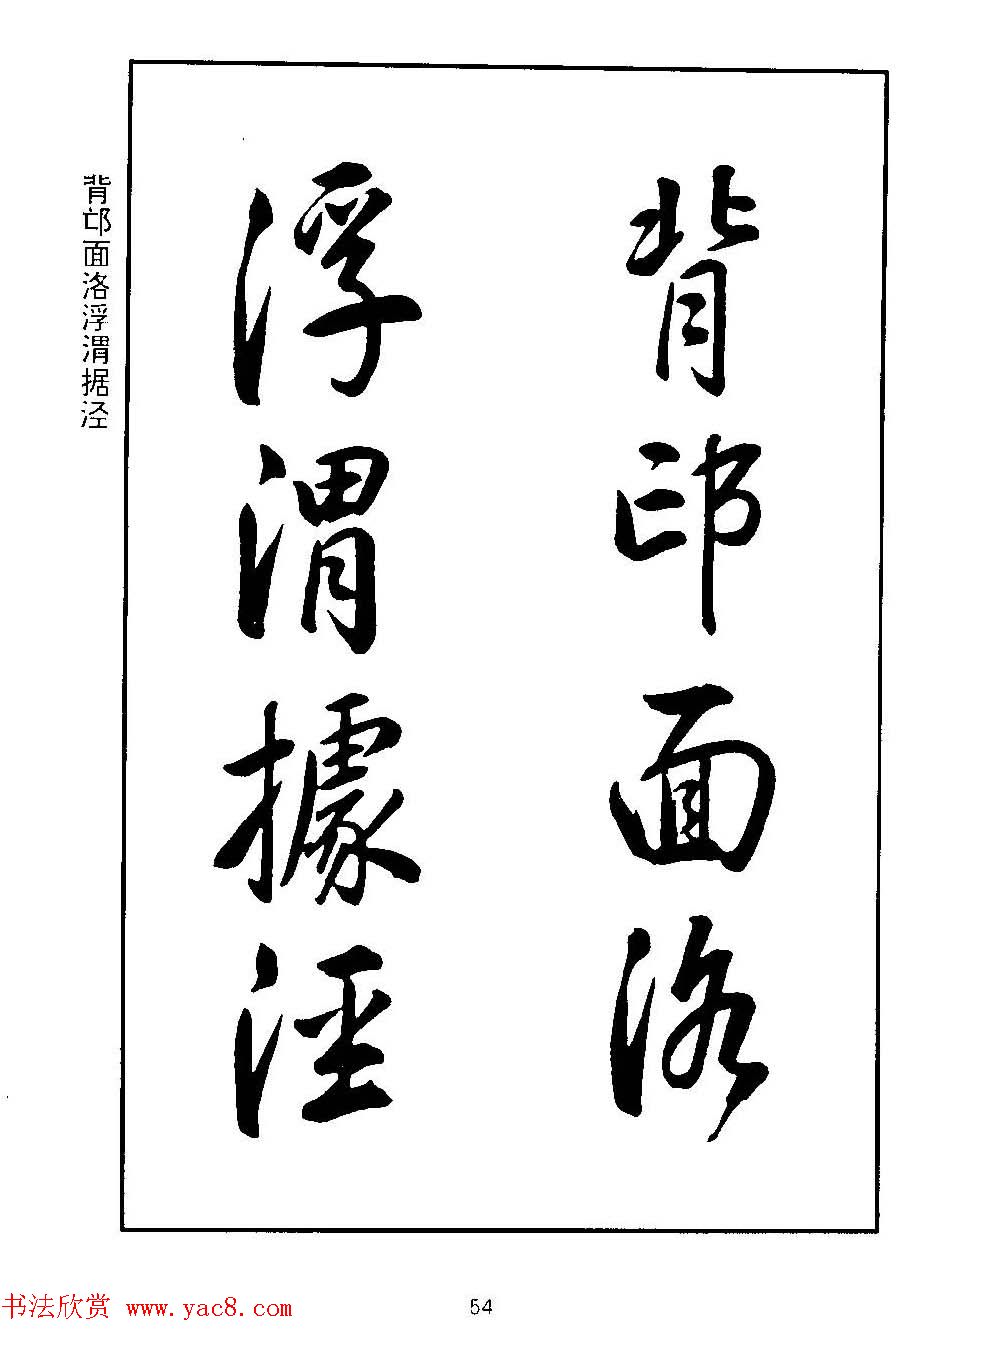 背邙面洛
浮渭據涇
背邙面洛浮渭据泾
54
书法欣赏 www.yac8.com